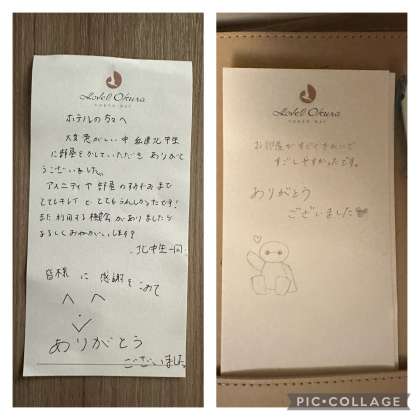 Hotel Okura
TOKYO BAY
ホテルの方々へ
大変忙しい中 私達北中生
に部屋をかしていただき ありがと
うございました。
アメニティや部屋のすみずみまで
とてもキレイで とてもうれしかったです!
また利用する機会がありましたら
よろしくおねがいします!
北中生一同
皆様 に 感謝をこめて
ありがとう
ございました。
Hotel Okura
TOKYO BAY
お部屋がすごくきれいで
すごしやすかったです。
ありがとう
ございました
PIC•COLLAGE